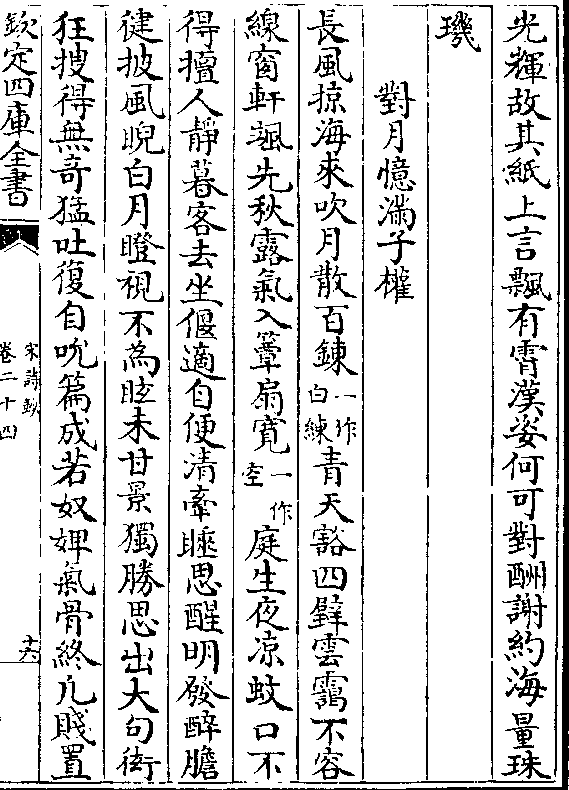 光輝故其紙上言飄有霄漢姿何可對酬謝約海量珠
璣
對月憶滿子權
長風掠海來吹月散百鍊一作白練青天豁四壁雲靄不容
線窗軒颯先秋露氣入簟扇寛一作空庭生夜凉蚊口不
得擅人靜暮客去坐偃適自便清牽睡思醒明發醉膽
徤披風睨白月瞪視不為眩未甘景獨勝思出大句衒
狂搜得無奇猛吐復自吮篇成若奴婢氣骨終凡賤置
欽定四庫全書
宋詩鈔
卷二十四
十六